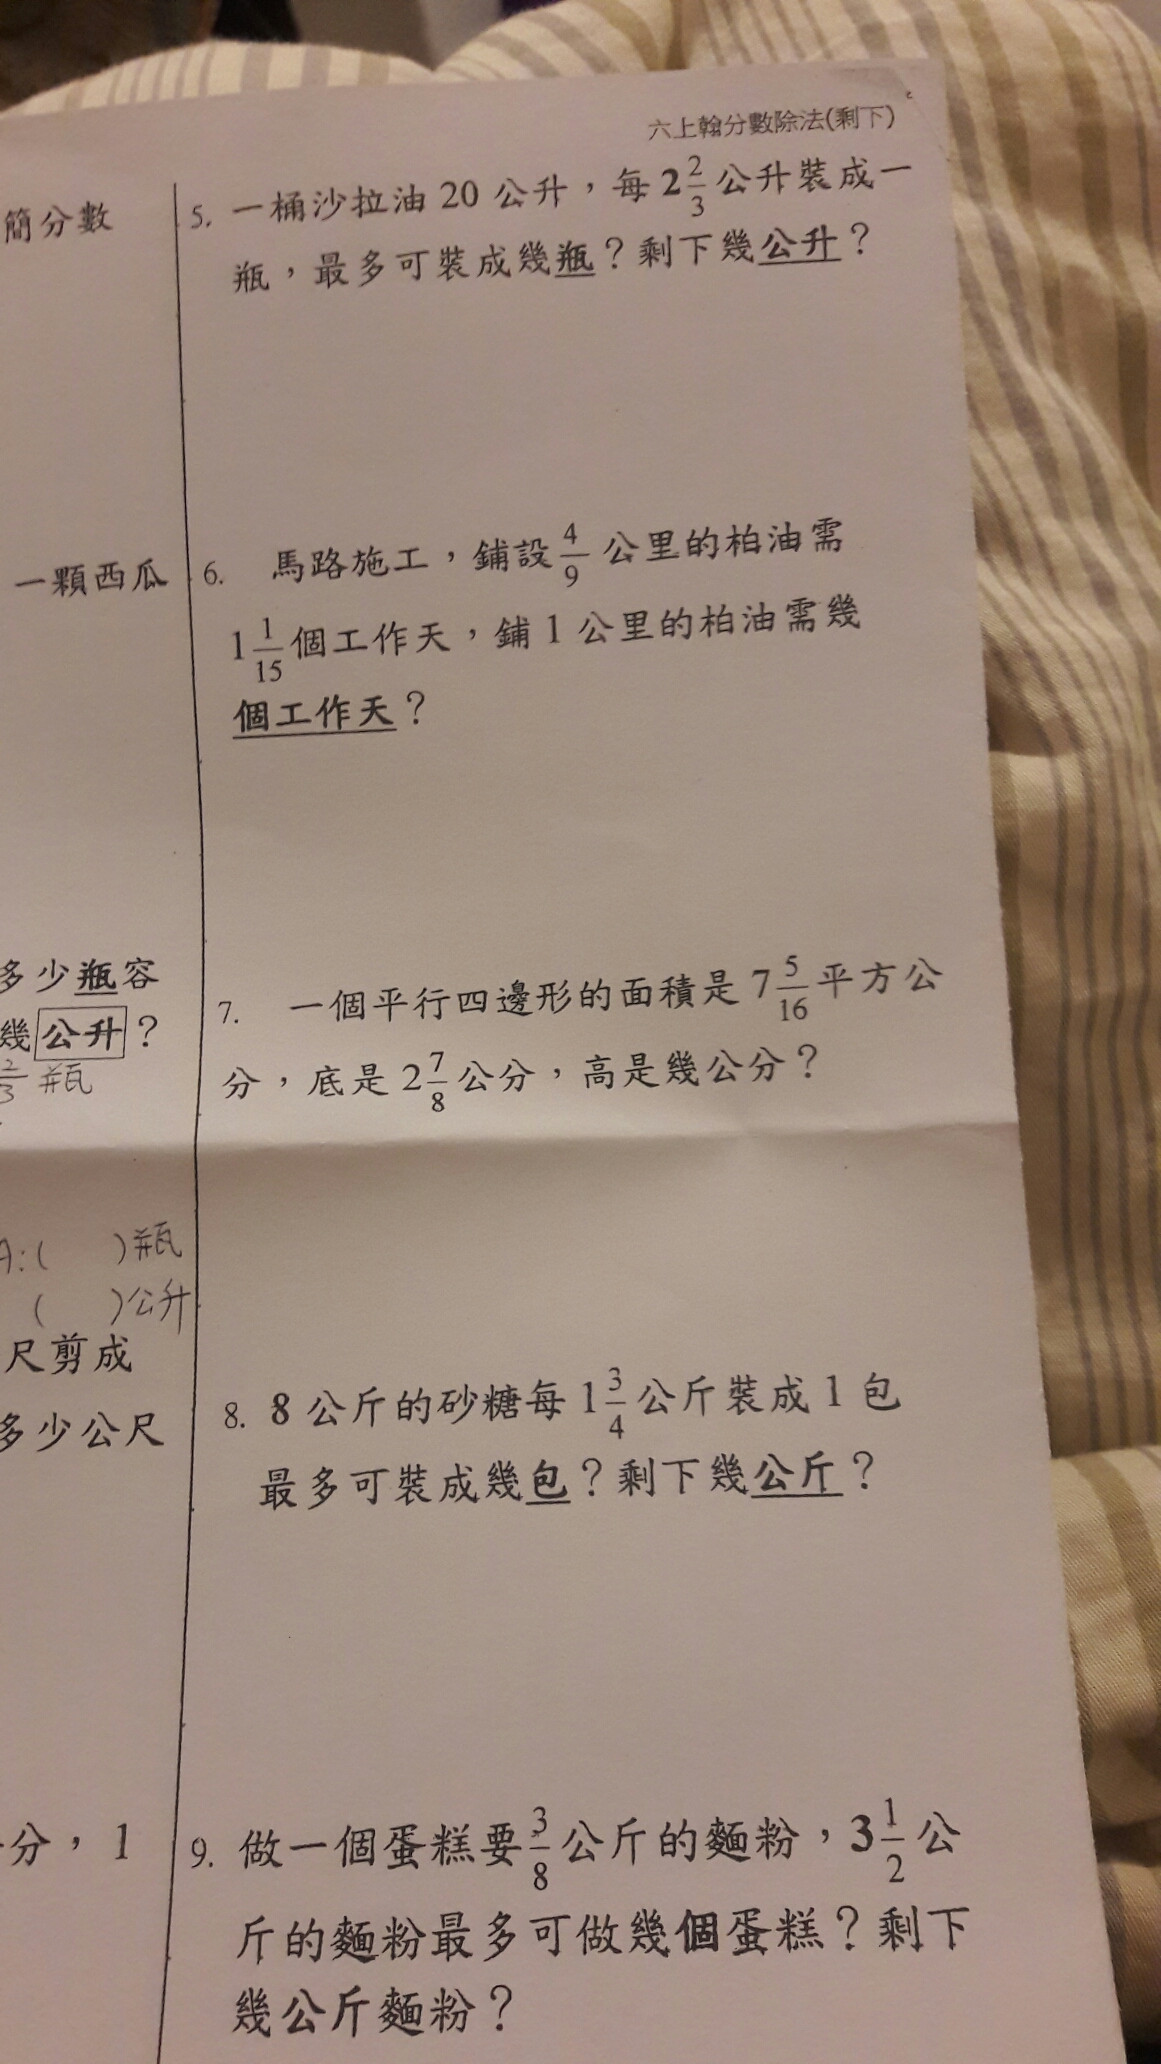 六上翰分數除法(剩下)
簡分數
5. 一桶沙拉油 20 公升，每 2 2/3 公升裝成一
瓶，最多可裝成幾瓶？剩下幾公升？
一顆西瓜
6. 馬路施工，鋪設 4/9 公里的柏油需
1 1/15 個工作天，鋪 1 公里的柏油需幾
個工作天？
多少瓶容
幾公升？
2/3 瓶
7. 一個平行四邊形的面積是 7 5/16 平方公
分，底是 2 7/8 公分，高是幾公分？
A:( )瓶
( )公升
尺剪成
多少公尺
8. 8 公斤的砂糖每 1 3/4 公斤裝成 1 包
最多可裝成幾包？剩下幾公斤？
分，1
9. 做一個蛋糕要 3/8 公斤的麵粉，3 1/2 公
斤的麵粉最多可做幾個蛋糕？剩下
幾公斤麵粉？